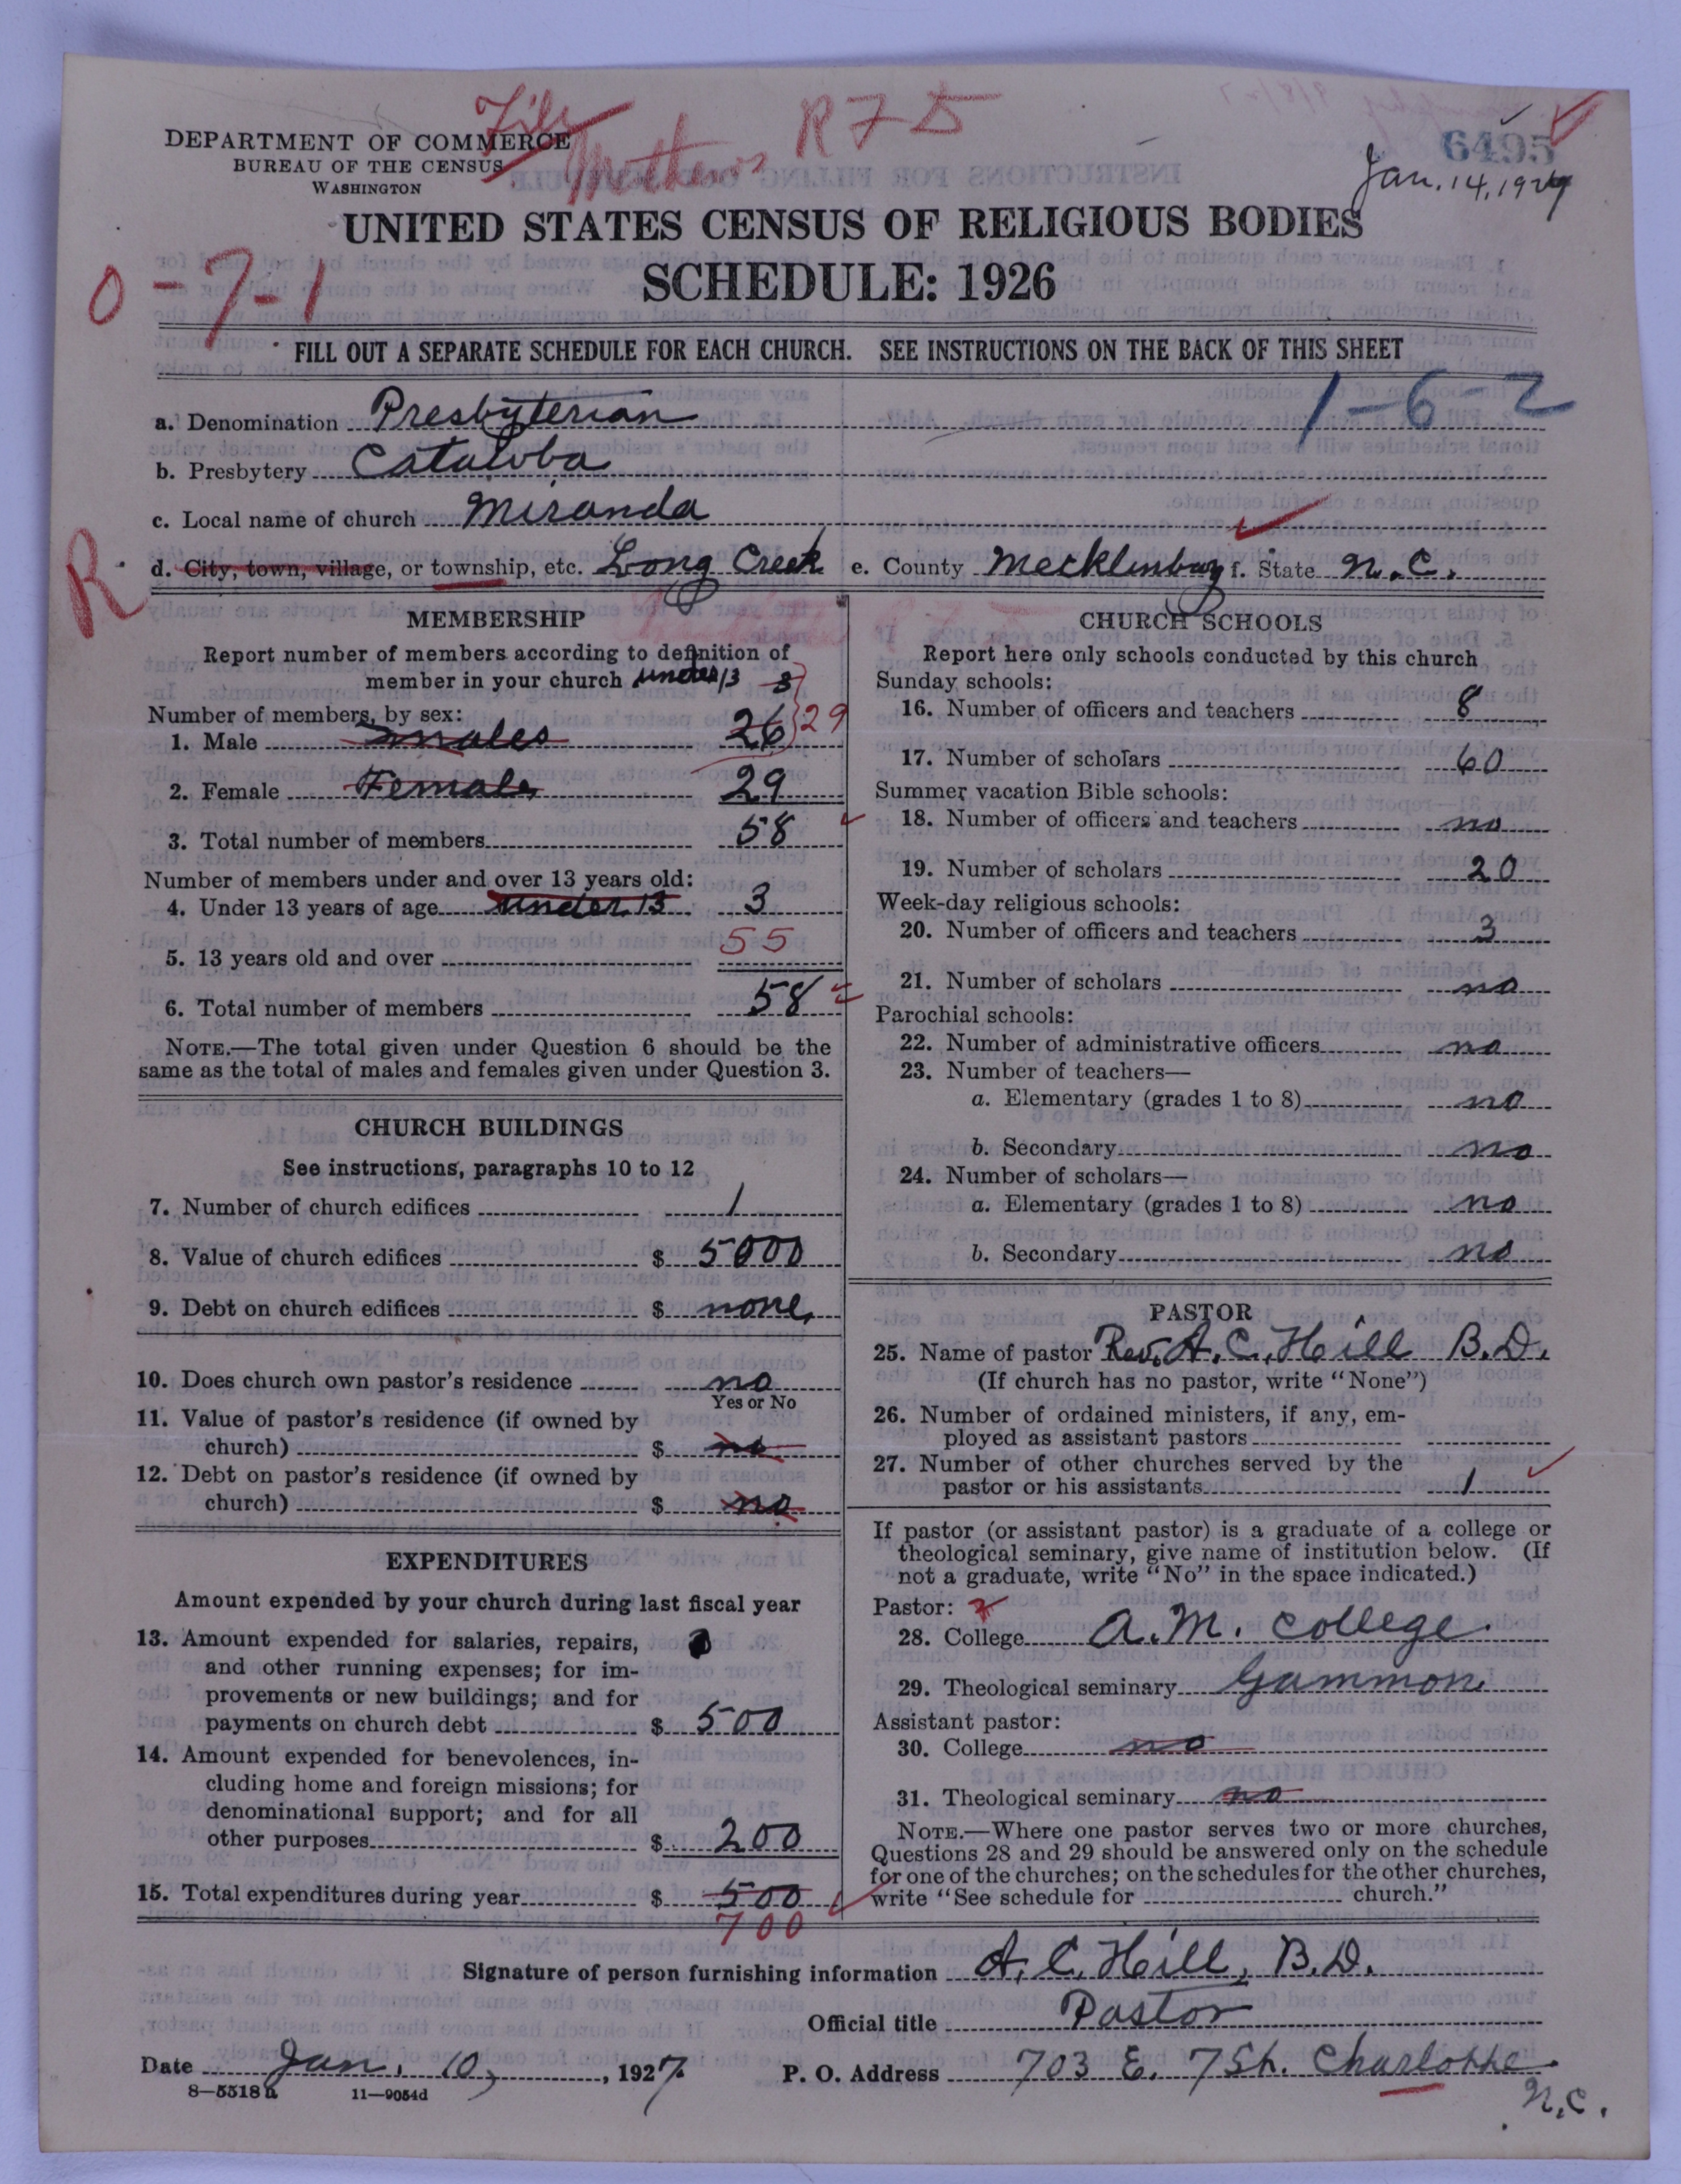 File
Mathews R F D
6495
Jan. 14, 1927
DEPARTMENT OF COMMERCE
BUREAU OF THE CENSUS
WASHINGTON
UNITED STATES CENSUS OF RELIGIOUS BODIES
SCHEDULE: 1926
0-7-1
FILL OUT A SEPARATE SCHEDULE FOR EACH CHURCH. SEE INSTRUCTIONS ON THE BACK OF THIS SHEET
1-6-2
a. Denomination Presbyterian
b. Presbytery Catawba
c. Local name of church Miranda
R
d. City, town, village, or township, etc. Long Creek e. County Mecklenburg f. State N.C.
MEMBERSHIP
Report number of members according to definition of
member in your church under 13 3
Number of members, by sex:
1. Male males 26 29
2. Female Female 29
3. Total number of members 58
Number of members under and over 13 years old:
4. Under 13 years of age under 13 3
5. 13 years old and over 55
6. Total number of members 58
NOTE.—The total given under Question 6 should be the
same as the total of males and females given under Question 3.
CHURCH BUILDINGS
See instructions, paragraphs 10 to 12
7. Number of church edifices 1
8. Value of church edifices $ 5000
9. Debt on church edifices $ none
10. Does church own pastor's residence no
Yes or No
11. Value of pastor's residence (if owned by
church) $ no
12. Debt on pastor's residence (if owned by
church) $ no
EXPENDITURES
Amount expended by your church during last fiscal year
13. Amount expended for salaries, repairs,
and other running expenses; for im-
provements or new buildings; and for
payments on church debt $ 500
14. Amount expended for benevolences, in-
cluding home and foreign missions; for
denominational support; and for all
other purposes $ 200
15. Total expenditures during year $ 500
700
CHURCH SCHOOLS
Report here only schools conducted by this church
Sunday schools:
16. Number of officers and teachers 8
17. Number of scholars 60
Summer vacation Bible schools:
18. Number of officers and teachers no
19. Number of scholars 20
Week-day religious schools:
20. Number of officers and teachers 3
21. Number of scholars no
Parochial schools:
22. Number of administrative officers no
23. Number of teachers—
a. Elementary (grades 1 to 8) no
b. Secondary no
24. Number of scholars—
a. Elementary (grades 1 to 8) no
b. Secondary no
PASTOR
25. Name of pastor Rev. A. C. Hill B.D.
(If church has no pastor, write "None")
26. Number of ordained ministers, if any, em-
ployed as assistant pastors
27. Number of other churches served by the
pastor or his assistants 1
If pastor (or assistant pastor) is a graduate of a college or
theological seminary, give name of institution below. (If
not a graduate, write "No" in the space indicated.)
Pastor:
28. College A. M. College.
29. Theological seminary Gammon.
Assistant pastor:
30. College no
31. Theological seminary no
NOTE.—Where one pastor serves two or more churches,
Questions 28 and 29 should be answered only on the schedule
for one of the churches; on the schedules for the other churches,
write "See schedule for church."
Signature of person furnishing information A. C. Hill, B.D.
Official title Pastor
Date Jan. 10, 1927 P. O. Address 703 E. 7 St. Charlotte
N.C.
8—5518a 11—9054d